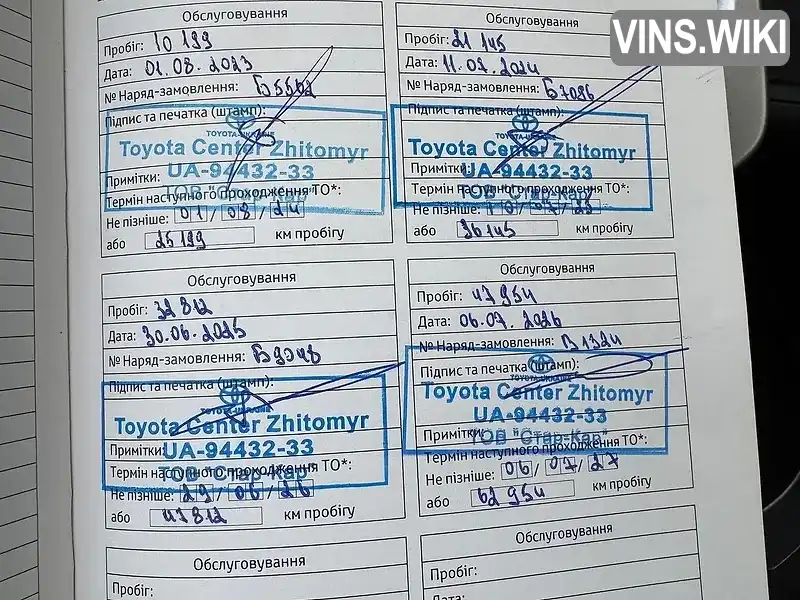 VINS.WIKI
Обслуговування
Пробіг: 10 199
Дата: 01.08.2023
№ Наряд-замовлення: Б5562
Підпис та печатка (штамп):
TOYOTA-UKRAINE
Toyota Center Zhitomyr
UA-94432-33
Примітки:
ТОВ "Стар-Кар"
Термін наступного проходження ТО*:
Не пізніше: 01/08/24
або 25199 км пробігу
Обслуговування
Пробіг: 21 145
Дата: 11.07.2024
№ Наряд-замовлення: Б7096
Підпис та печатка (штамп):
Toyota Center Zhitomyr
Примітки:
UA-94432-33
Термін наступного проходження ТО*:
ТОВ "Стар-Кар"
Не пізніше: 10/07/25
або 36145 км пробігу
Обслуговування
Пробіг: 32 812
Дата: 30.06.2025
№ Наряд-замовлення:
Підпис та печатка (штамп):
Toyota Center Zhitomyr
Примітки:
UA-94432-33
Термін наступного проходження ТО*:
ТОВ "Стар-Кар"
Не пізніше: 29/06/26
або 47812 км пробігу
Обслуговування
Пробіг: 47954
Дата: 06.07.2026
№ Наряд-замовлення: В1324
Підпис та печатка (штамп):
TOYOTA-UKRAINE
Toyota Center Zhitomyr
UA-94432-33
Примітки:
ТОВ "Стар-Кар"
Термін наступного проходження ТО*:
Не пізніше: 06/07/27
або 62954 км пробігу
Обслуговування
Пробіг:
Обслуговування
Пробіг:
Дата: